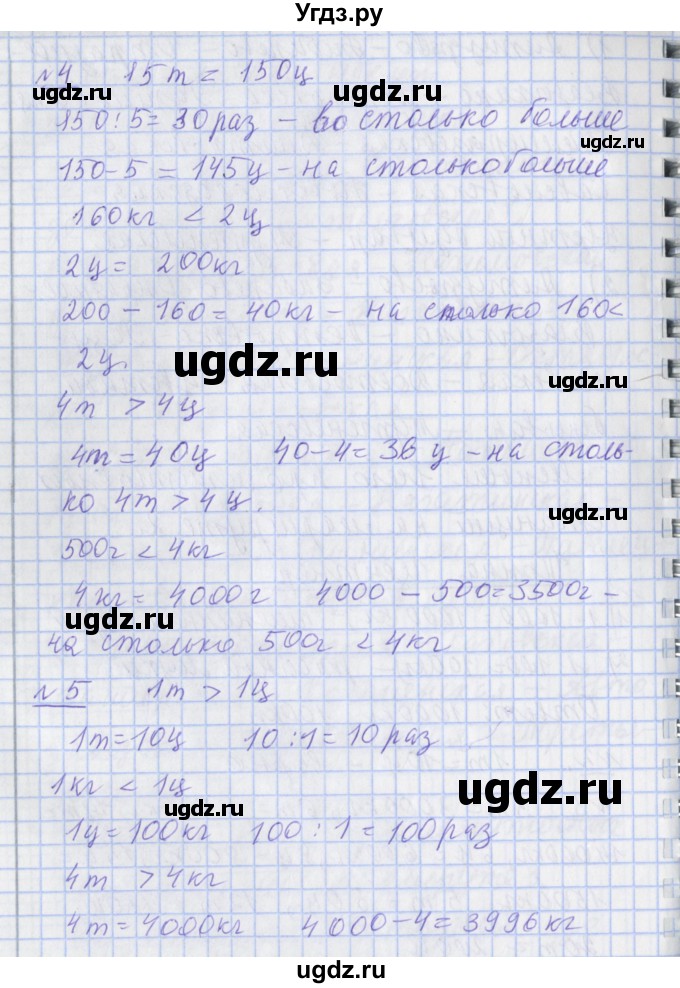 Угдз.ру
№4 15т = 150ц
150:5=30 раз - во столько больше
150-5=145ц - на столько больше
160кг < 2ц
2ц = 200кг
200-160=40кг - на столько 160<
2ц.
4т > 4ц
4т=40ц 40-4=36 ц - на столь-
ко 4т > 4ц.
500г < 4кг
4кг = 4000г 4000-500=3500г -
на столько 500г < 4кг
№5 1т > 1ц
1т=10ц 10:1=10 раз
1кг < 1ц
1ц=100кг 100:1=100 раз
4т > 4кг
4т=4000кг 4000-4=3996кг
ugdz.ru
ugdz.ru
ugdz.ru
ugdz.ru
ugdz.ru
ugdz.ru
ugdz.ru
ugdz.ru
ugdz.ru
ugdz.ru
ugdz.ru
ugdz.ru